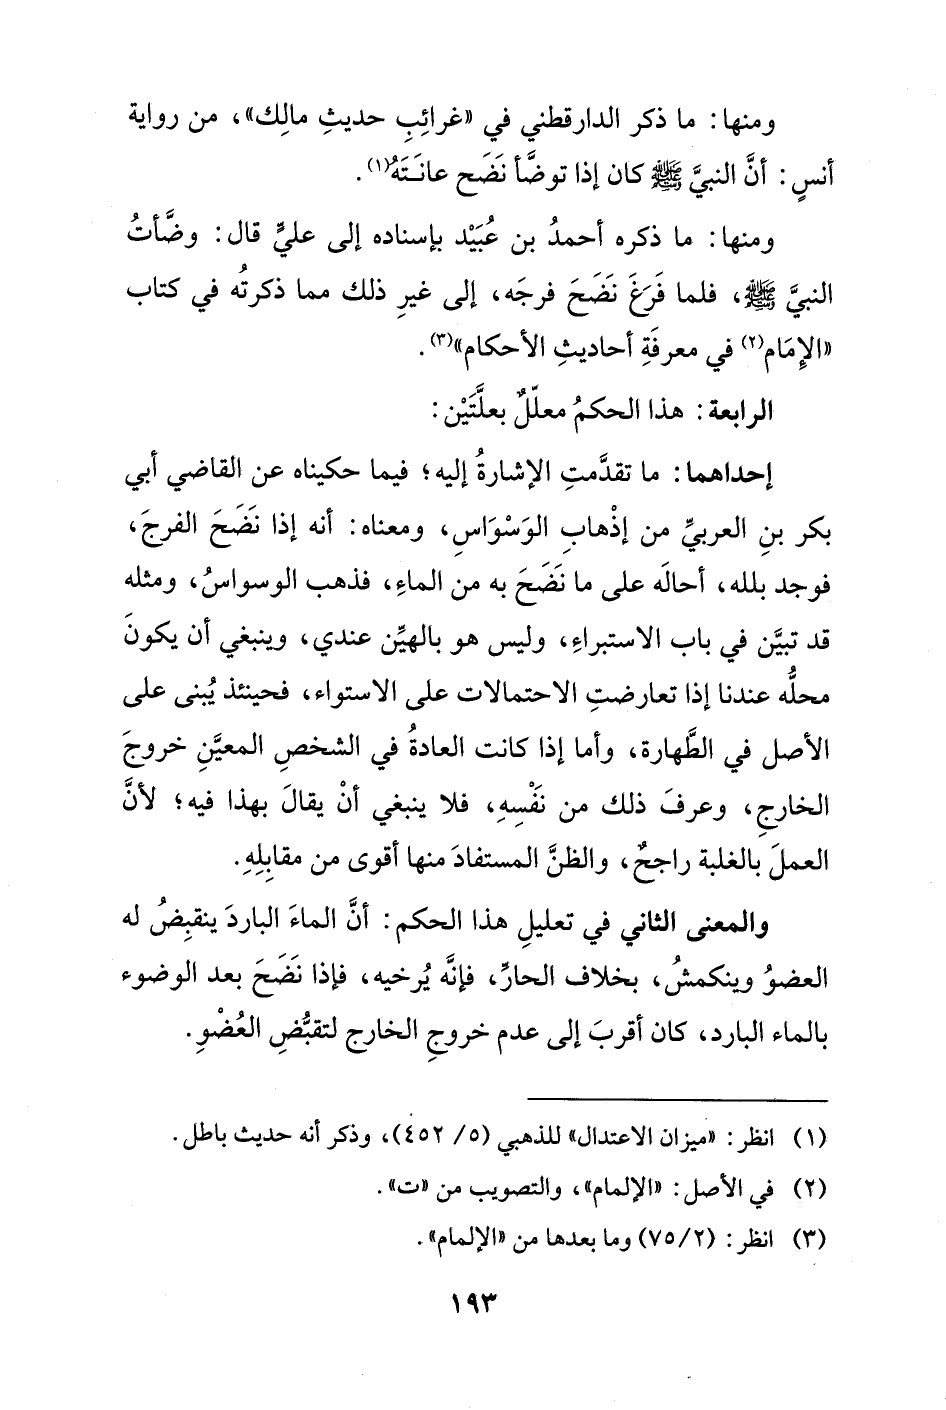 ومنها: ما ذكر الدارقطني في «غرائِبِ حديثِ مالِك»، من رواية
أنسٍ: أنَّ النبيَّ ﷺ كان إذا توضَّأ نَضَح عانَتَهُ(١).
ومنها: ما ذكره أحمدُ بن عُبَيْد بإسناده إلى عليٍّ قال: وضَّأتُ
النبيَّ ﷺ، فلما فَرَغَ نَضَحَ فرجَه، إلى غيرِ ذلك مما ذكرتُه في كتاب
«الإِمَام(٢) في معرفَةِ أحاديثِ الأحكام»(٣).
الرابعة: هذا الحكمُ معلّلٌ بعلَّتَيْن:
إحداهما: ما تقدَّمتِ الإشارةُ إليه؛ فيما حكيناه عن القاضي أبي
بكر بنِ العربيِّ من إذْهابِ الوَسْوَاسِ، ومعناه: أنه إذا نَضَحَ الفرجَ،
فوجد بلله، أحالَه على ما نَضَحَ به من الماءِ، فذهب الوسواسُ، ومثله
قد تبيَّن في باب الاستبراءِ، وليس هو بالهيِّن عندي، وينبغي أن يكونَ
محلُّه عندنا إذا تعارضتِ الاحتمالات على الاستواء، فحينئذ يُبنى على
الأصل في الطَّهارة، وأما إذا كانت العادةُ في الشخصِ المعيَّنِ خروجَ
الخارجِ، وعرفَ ذلك من نَفْسِهِ، فلا ينبغي أنْ يقالَ بهذا فيه؛ لأنَّ
العملَ بالغلبة راجحٌ، والظنَّ المستفادَ منها أقوى من مقابِلِهِ.
والمعنى الثاني في تعليلِ هذا الحكم: أنَّ الماءَ الباردَ ينقبِضُ له
العضوُ وينكمشُ، بخلاف الحارِّ، فإنَّه يُرخيه، فإذا نَضَحَ بعد الوضوء
بالماء البارد، كان أقربَ إلى عدم خروجِ الخارج لتقبُّضِ العُضْوِ.
(١) انظر: «ميزان الاعتدال» للذهبي (٥/ ٤٥٢)، وذكر أنه حديث باطل.
(٢) في الأصل: «الإلمام»، والتصويب من «ت».
(٣) انظر: (٧٥/٢) وما بعدها من «الإلمام».
١٩٣